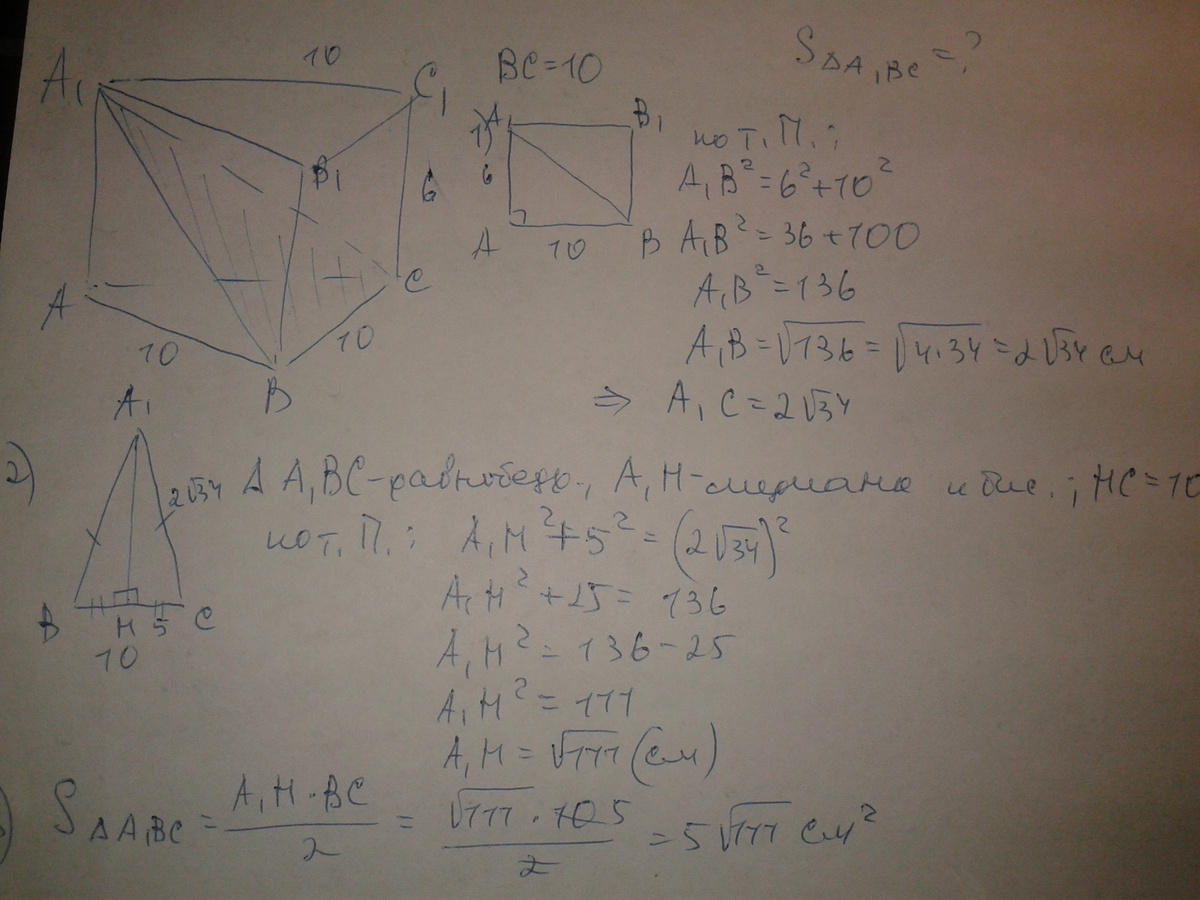 10
BC=10
S ΔA₁BC = ?
A₁
C₁
B₁
6
A
C
10
10
B
1)
A
B₁
6
A
10
B
по т. П.:
A₁B² = 6² + 10²
A₁B² = 36 + 100
A₁B² = 136
A₁B = √136 = √4·34 = 2√34 см
⇒ A₁C = 2√34
2)
A₁
2√34
B
H
5
C
10
Δ A₁BC - равнобедр., A₁H - медиана и бис.; HC = 10
по т. П.: A₁H² + 5² = (2√34)²
A₁H² + 25 = 136
A₁H² = 136 - 25
A₁H² = 111
A₁H = √111 (см)
) S ΔA₁BC = A₁H · BC / 2 = √111 · 10 5 / 2 = 5√111 см²